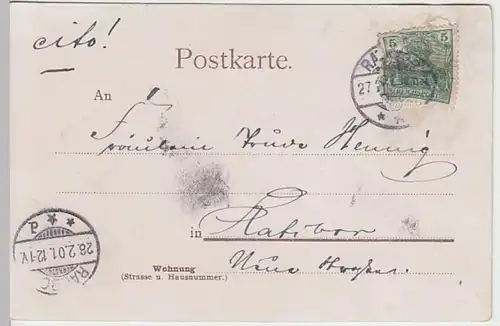 cito!
Postkarte.
5 5
RA
27
An
Fräulein Trude Hennig
in Ratibor
Wohnung
(Strasse u. Hausnummer.)
Neue
28.2.01.12-1V.
RA